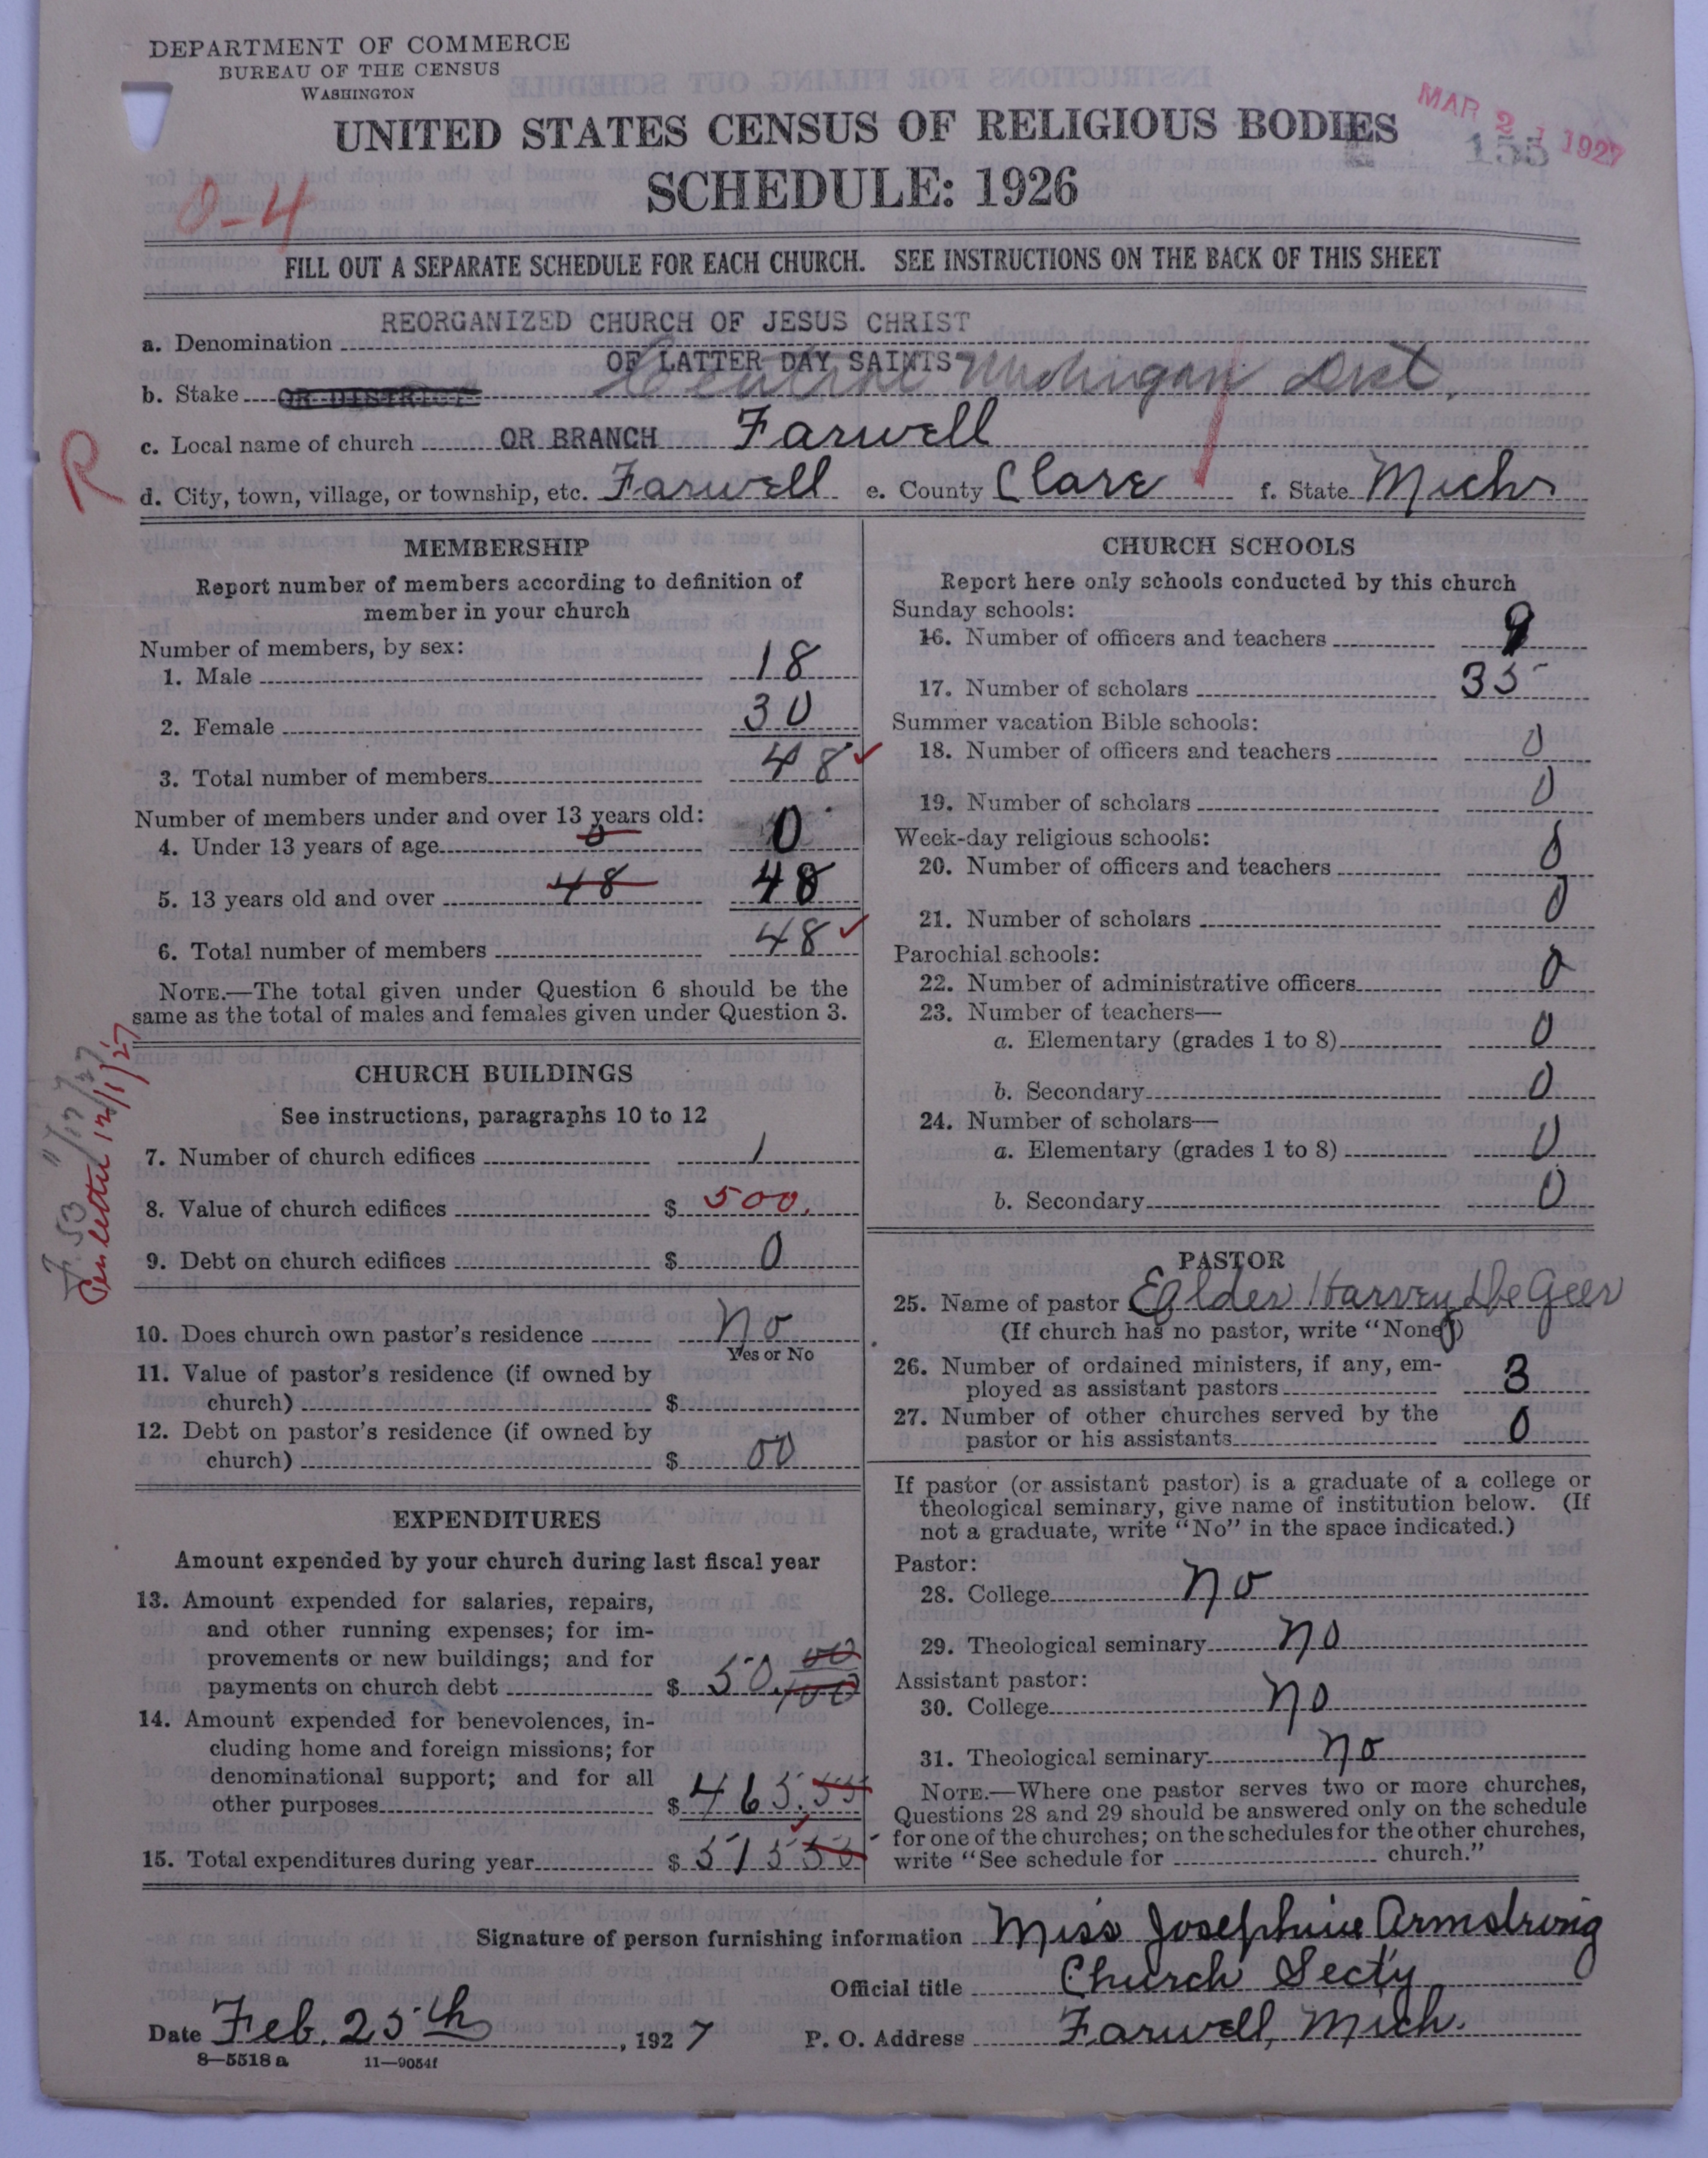 DEPARTMENT OF COMMERCE
BUREAU OF THE CENSUS
WASHINGTON
UNITED STATES CENSUS OF RELIGIOUS BODIES
SCHEDULE: 1926
MAR 2 1927
155
0-4
FILL OUT A SEPARATE SCHEDULE FOR EACH CHURCH. SEE INSTRUCTIONS ON THE BACK OF THIS SHEET
a. Denomination REORGANIZED CHURCH OF JESUS CHRIST
OF LATTER DAY SAINTS
b. Stake OR DISTRICT Central Michigan Dist.
R
c. Local name of church OR BRANCH Farwell
d. City, town, village, or township, etc. Farwell e. County Clare f. State Mich
MEMBERSHIP
Report number of members according to definition of
member in your church
Number of members, by sex:
1. Male 18
2. Female 30
3. Total number of members 48
Number of members under and over 13 years old:
4. Under 13 years of age 0 0
5. 13 years old and over 48 48
6. Total number of members 48
NOTE.—The total given under Question 6 should be the
same as the total of males and females given under Question 3.
CHURCH BUILDINGS
See instructions, paragraphs 10 to 12
7. Number of church edifices 1
8. Value of church edifices $ 500.
9. Debt on church edifices $ 0
10. Does church own pastor's residence No
Yes or No
11. Value of pastor's residence (if owned by
church) $
12. Debt on pastor's residence (if owned by
church) $ 00
53 11/17/27
Per letter 12/1/27
EXPENDITURES
Amount expended by your church during last fiscal year
13. Amount expended for salaries, repairs,
and other running expenses; for im-
provements or new buildings; and for
payments on church debt $ 50.00/100
14. Amount expended for benevolences, in-
cluding home and foreign missions; for
denominational support; and for all
other purposes $ 465.55
15. Total expenditures during year $ 515 55
CHURCH SCHOOLS
Report here only schools conducted by this church
Sunday schools:
16. Number of officers and teachers 9
17. Number of scholars 35
Summer vacation Bible schools:
18. Number of officers and teachers 0
19. Number of scholars 0
Week-day religious schools:
20. Number of officers and teachers 0
21. Number of scholars 0
Parochial schools:
22. Number of administrative officers 0
23. Number of teachers—
a. Elementary (grades 1 to 8) 0
b. Secondary 0
24. Number of scholars—
a. Elementary (grades 1 to 8) 0
b. Secondary 0
PASTOR
25. Name of pastor Elder Harvey De Geer
(If church has no pastor, write "None")
26. Number of ordained ministers, if any, em-
ployed as assistant pastors 3
27. Number of other churches served by the
pastor or his assistants 0
If pastor (or assistant pastor) is a graduate of a college or
theological seminary, give name of institution below. (If
not a graduate, write "No" in the space indicated.)
Pastor:
28. College No
29. Theological seminary No
Assistant pastor:
30. College No
31. Theological seminary No
NOTE.—Where one pastor serves two or more churches,
Questions 28 and 29 should be answered only on the schedule
for one of the churches; on the schedules for the other churches,
write "See schedule for church."
Signature of person furnishing information Miss Josephine Armstrong
Official title Church Secty
Date Feb. 25th, 1927 P. O. Address Farwell, Mich.
8—5518a 11—9054f